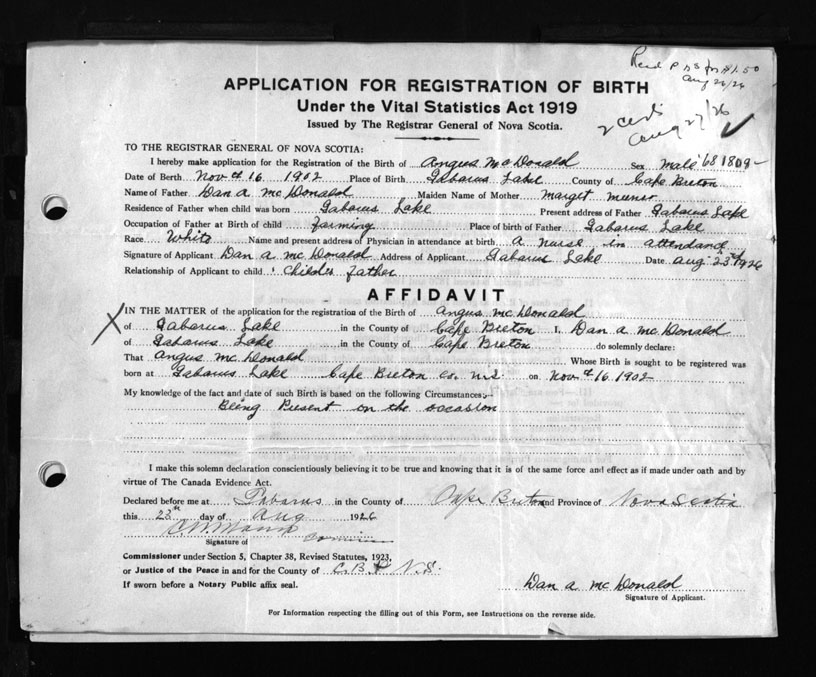 Recd P B S for $1.50
Aug 26/26
APPLICATION FOR REGISTRATION OF BIRTH
Under the Vital Statistics Act 1919
2 certs
Aug 27/26 ✓
Issued by The Registrar General of Nova Scotia.
TO THE REGISTRAR GENERAL OF NOVA SCOTIA:
I hereby make application for the Registration of the Birth of Angus McDonald Sex male 681809
Date of Birth Nov 16 1902 Place of Birth Gabarus Lake County of Cape Breton
Name of Father Dan a mcDonald Maiden Name of Mother Marget
Residence of Father when child was born Gabarus Lake Present address of Father Gabarus Lake
Occupation of Father at Birth of child farming Place of birth of Father Gabarus Lake
Race White Name and present address of Physician in attendance at birth a nurse in attendance
Signature of Applicant Dan a mcDonald Address of Applicant Gabarus Lake Date Aug 23rd 1926
Relationship of Applicant to child Childs father
AFFIDAVIT
X IN THE MATTER of the application for the registration of the Birth of Angus mcDonald
of Gabarus Lake in the County of Cape Breton I, Dan a mcDonald
of Gabarus Lake in the County of Cape Breton do solemnly declare:
That Angus mcDonald Whose Birth is sought to be registered was
born at Gabarus Lake Cape Breton Co. N.S. on Nov 16 1902
My knowledge of the fact and date of such Birth is based on the following Circumstances:—
Being Present on the occasion
I make this solemn declaration conscientiously believing it to be true and knowing that it is of the same force and effect as if made under oath and by
virtue of The Canada Evidence Act.
Declared before me at Gabarus in the County of Cape Breton and Province of Nova Scotia
this 23rd day of Aug 1926
Signature of
Commissioner under Section 5, Chapter 38, Revised Statutes, 1923,
or Justice of the Peace in and for the County of C.B. N.S.
If sworn before a Notary Public affix seal.
Dan a mcDonald
Signature of Applicant.
For Information respecting the filling out of this Form, see Instructions on the reverse side.